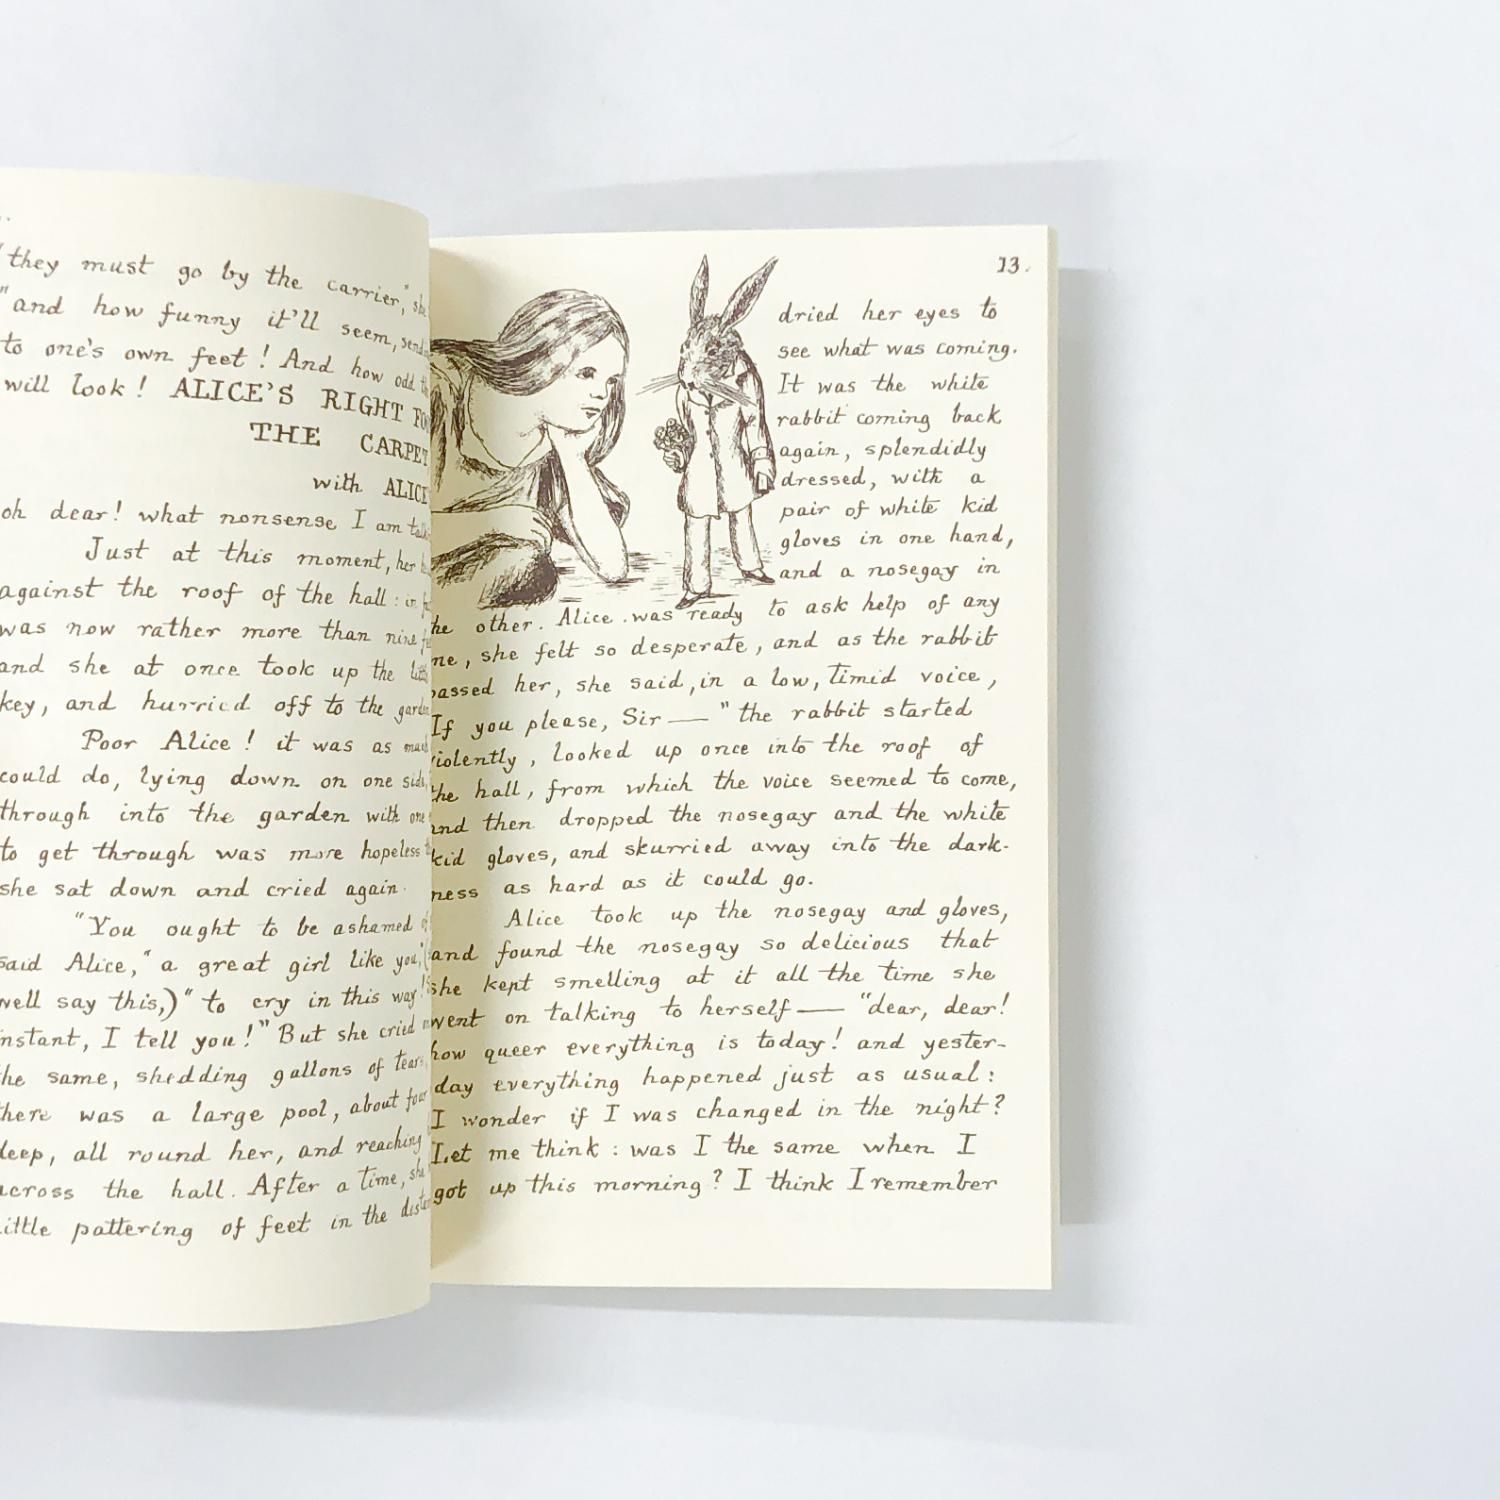 they must go by the carrier," she
"and how funny it'll seem, send
to one's own feet! And how odd the
will look! ALICE'S RIGHT FO
THE CARPET
with ALICE
oh dear! what nonsense I am talk
Just at this moment, her
against the roof of the hall: in
was now rather more than nine
and she at once took up the little
key, and hurried off to the garden
Poor Alice! it was as much
could do, lying down on one side,
through into the garden with one
to get through was more hopeless
she sat down and cried again.
"You ought to be ashamed of
said Alice, "a great girl like you," (
well say this,) "to cry in this way!
instant, I tell you!" But she cried
the same, shedding gallons of tears
there was a large pool, about four
deep, all round her, and reaching
across the hall. After a time, she
little pattering of feet in the distan
13.
dried her eyes to
see what was coming.
It was the white
rabbit coming back
again, splendidly
dressed, with a
pair of white kid
gloves in one hand,
and a nosegay in
the other. Alice was ready to ask help of any
ne, she felt so desperate, and as the rabbit
passed her, she said, in a low, timid voice,
If you please, Sir — " the rabbit started
violently, looked up once into the roof of
the hall, from which the voice seemed to come,
and then dropped the nosegay and the white
kid gloves, and skurried away into the dark-
ness as hard as it could go.
Alice took up the nosegay and gloves,
and found the nosegay so delicious that
she kept smelling at it all the time she
went on talking to herself — "dear, dear!
how queer everything is today! and yester-
day everything happened just as usual:
I wonder if I was changed in the night?
Let me think: was I the same when I
got up this morning? I think I remember